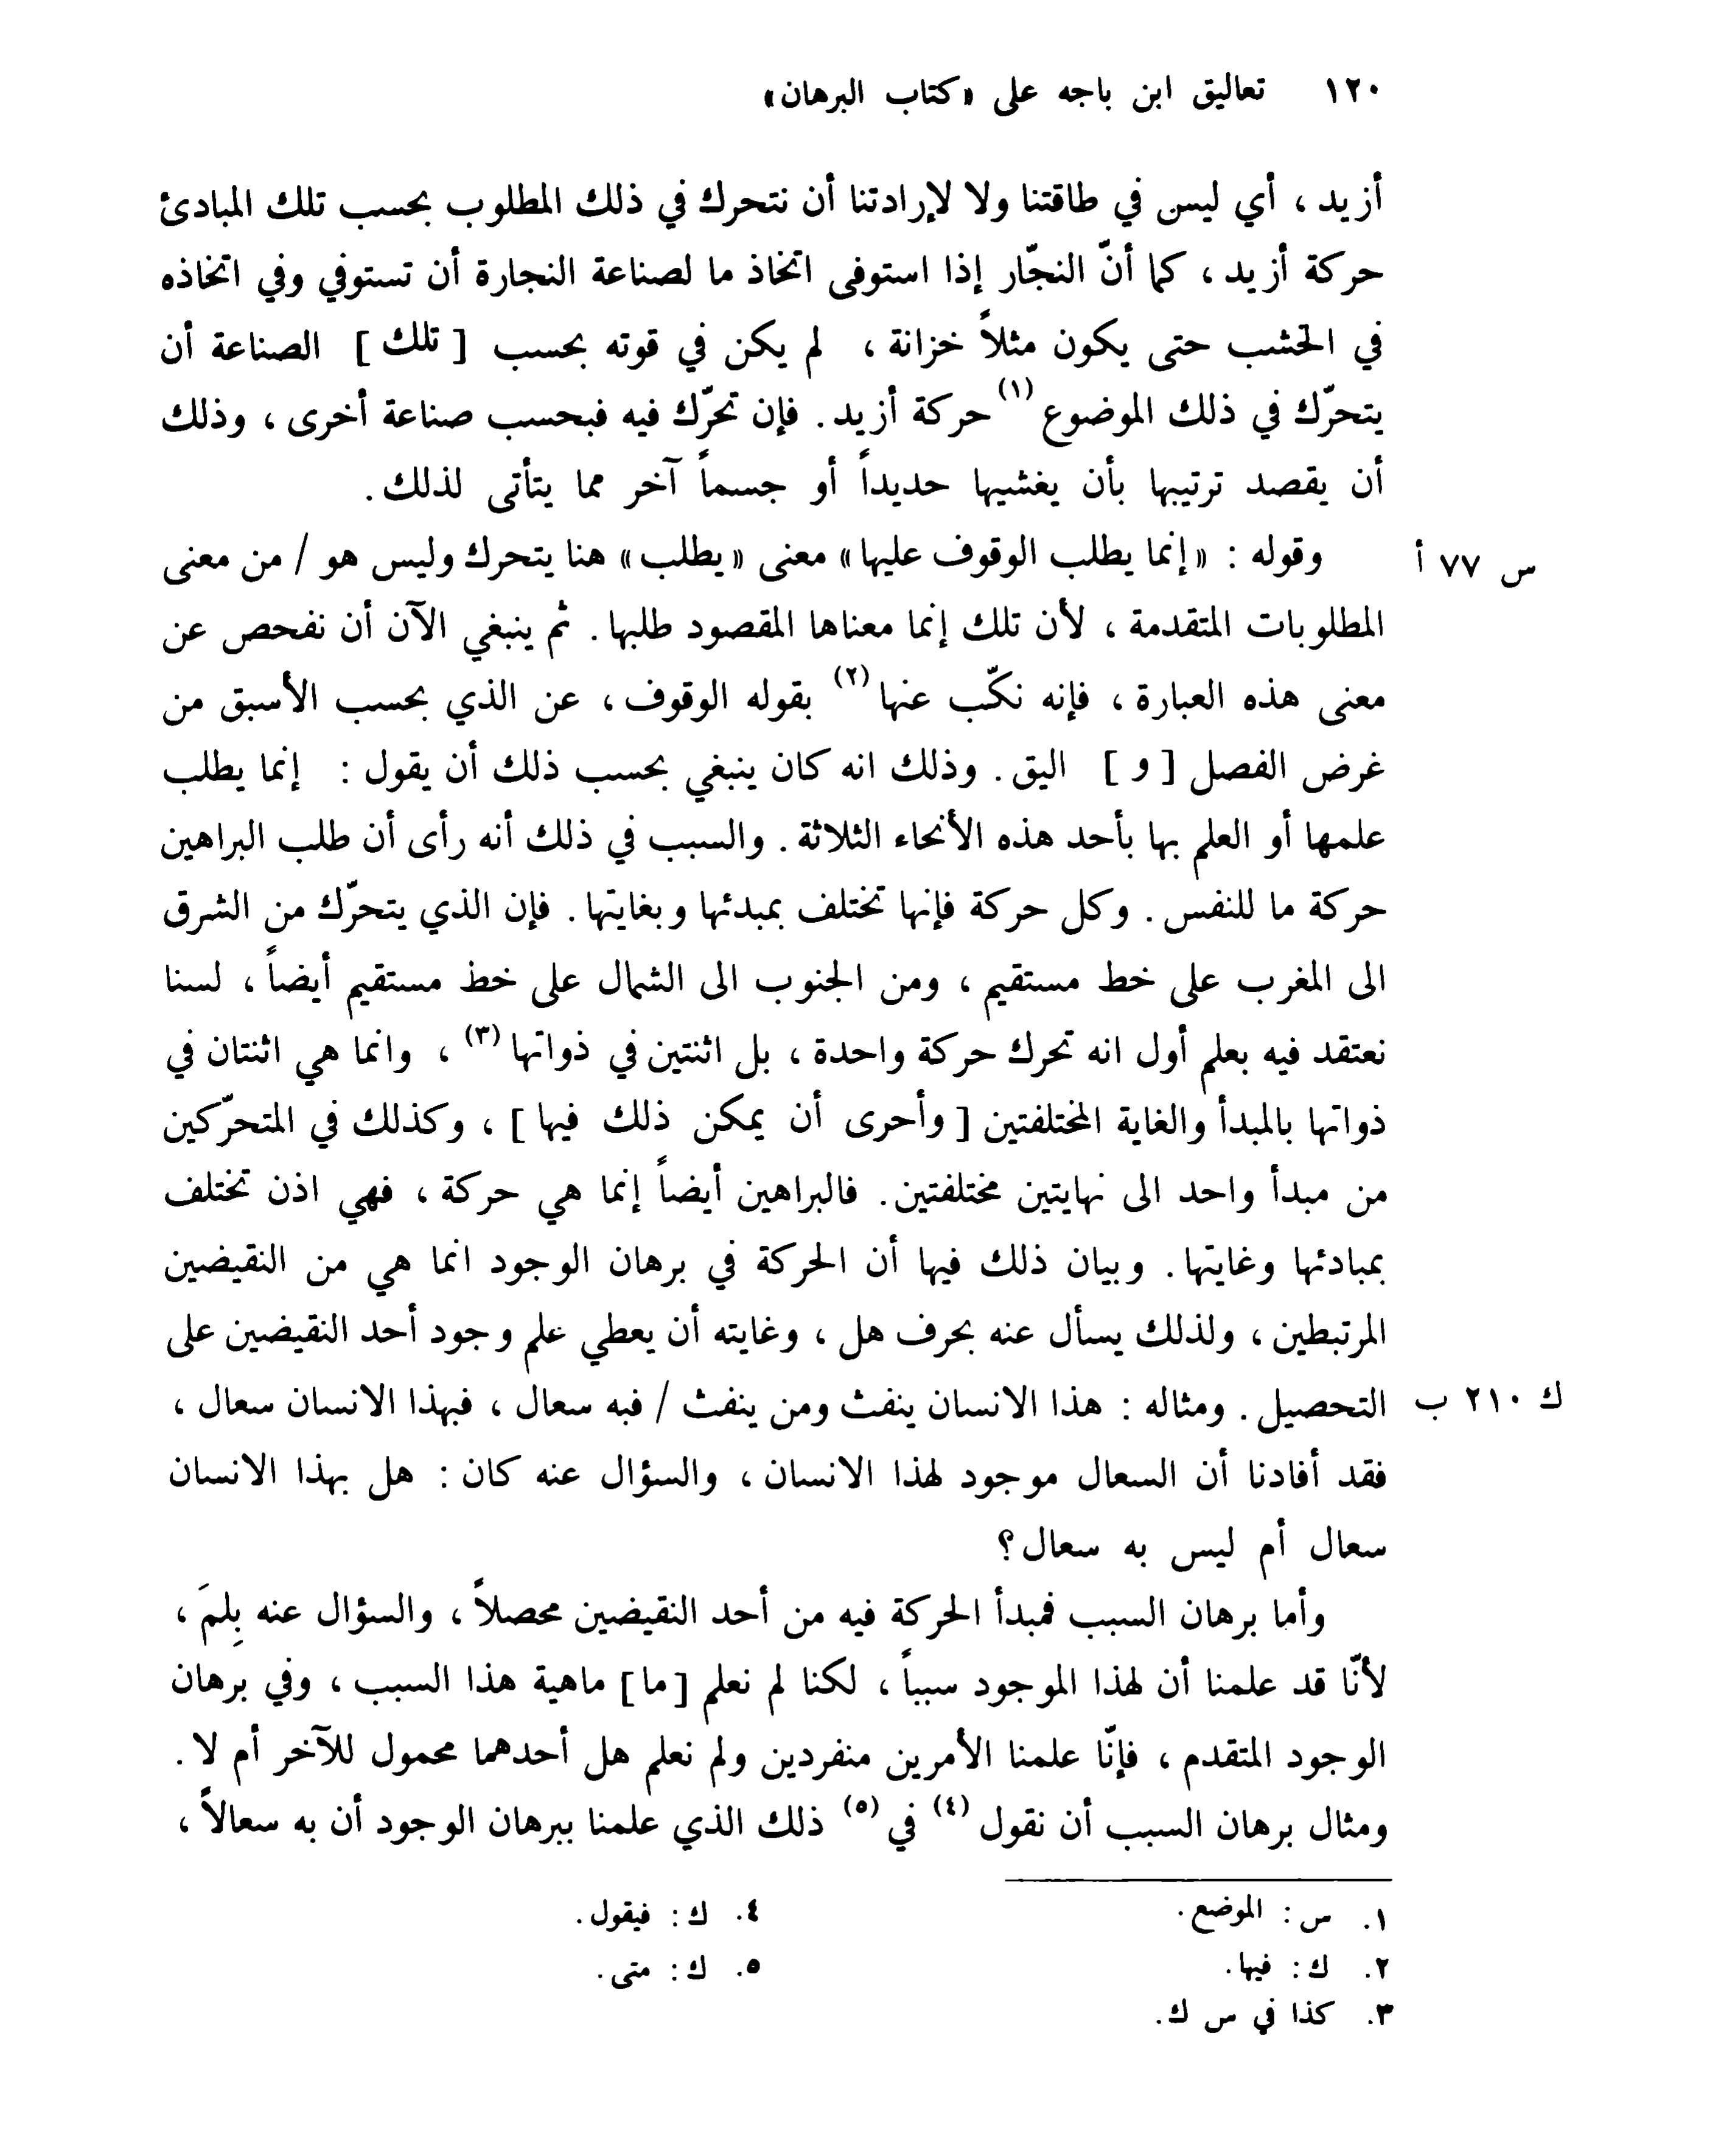 ١٢٠ تعاليق ابن باجه على «كتاب البرهان»
أزيد ، أي ليس في طاقتنا ولا لإرادتنا أن نتحرك في ذلك المطلوب بحسب تلك المبادئ
حركة أزيد ، كما أنّ النجّار إذا استوفى اتخاذ ما لصناعة النجارة أن تستوفي وفي اتخاذه
في الخشب حتى يكون مثلاً خزانة ، لم يكن في قوته بحسب [ تلك ] الصناعة أن
يتحرّك في ذلك الموضوع (١) حركة أزيد . فإن تحرّك فيه فبحسب صناعة أخرى ، وذلك
أن يقصد ترتيبها بأن يغشيها حديداً أو جسماً آخر مما يتأتى لذلك .
وقوله : « إنما يطلب الوقوف عليها » معنى « يطلب » هنا يتحرك وليس هو / من معنى س ٧٧ أ
المطلوبات المتقدمة ، لأن تلك إنما معناها المقصود طلبها . ثم ينبغي الآن أن نفحص عن
معنى هذه العبارة ، فإنه نكّب عنها (٢) بقوله الوقوف ، عن الذي بحسب الأسبق من
غرض الفصل [ و ] اليق . وذلك انه كان ينبغي بحسب ذلك أن يقول : إنما يطلب
علمها أو العلم بها بأحد هذه الأنحاء الثلاثة . والسبب في ذلك أنه رأى أن طلب البراهين
حركة ما للنفس . وكل حركة فإنها تختلف بمبدئها وبغايتها . فإن الذي يتحرّك من الشرق
الى المغرب على خط مستقيم ، ومن الجنوب الى الشمال على خط مستقيم أيضاً ، لسنا
نعتقد فيه بعلم أول انه تحرك حركة واحدة ، بل اثنتين في ذواتها (٣) ، وانما هي اثنتان في
ذواتها بالمبدأ والغاية المختلفتين [ وأحرى أن يمكن ذلك فيها ] ، وكذلك في المتحرّكين
من مبدأ واحد الى نهايتين مختلفتين . فالبراهين أيضاً إنما هي حركة ، فهي اذن تختلف
بمبادئها وغايتها . وبيان ذلك فيها أن الحركة في برهان الوجود انما هي من النقيضين
المرتبطين ، ولذلك يسأل عنه بحرف هل ، وغايته أن يعطي علم وجود أحد النقيضين على
التحصيل . ومثاله : هذا الانسان ينفث ومن ينفث / فبه سعال ، فبهذا الانسان سعال ، ك ٢١٠ ب
فقد أفادنا أن السعال موجود لهذا الانسان ، والسؤال عنه كان : هل بهذا الانسان
سعال أم ليس به سعال ؟
وأما برهان السبب فمبدأ الحركة فيه من أحد النقيضين محصلاً ، والسؤال عنه بِلِمَ ،
لأنّا قد علمنا أن لهذا الموجود سبباً ، لكنا لم نعلم [ ما ] ماهية هذا السبب ، وفي برهان
الوجود المتقدم ، فإنّا علمنا الأمرين منفردين ولم نعلم هل أحدهما محمول للآخر أم لا .
ومثال برهان السبب أن نقول (٤) في (٥) ذلك الذي علمنا ببرهان الوجود أن به سعالاً ،
١. س : الموضع .
٢. ك : فيها .
٣. كذا في س ك .
٤. ك : فيقول .
٥. ك : متى .